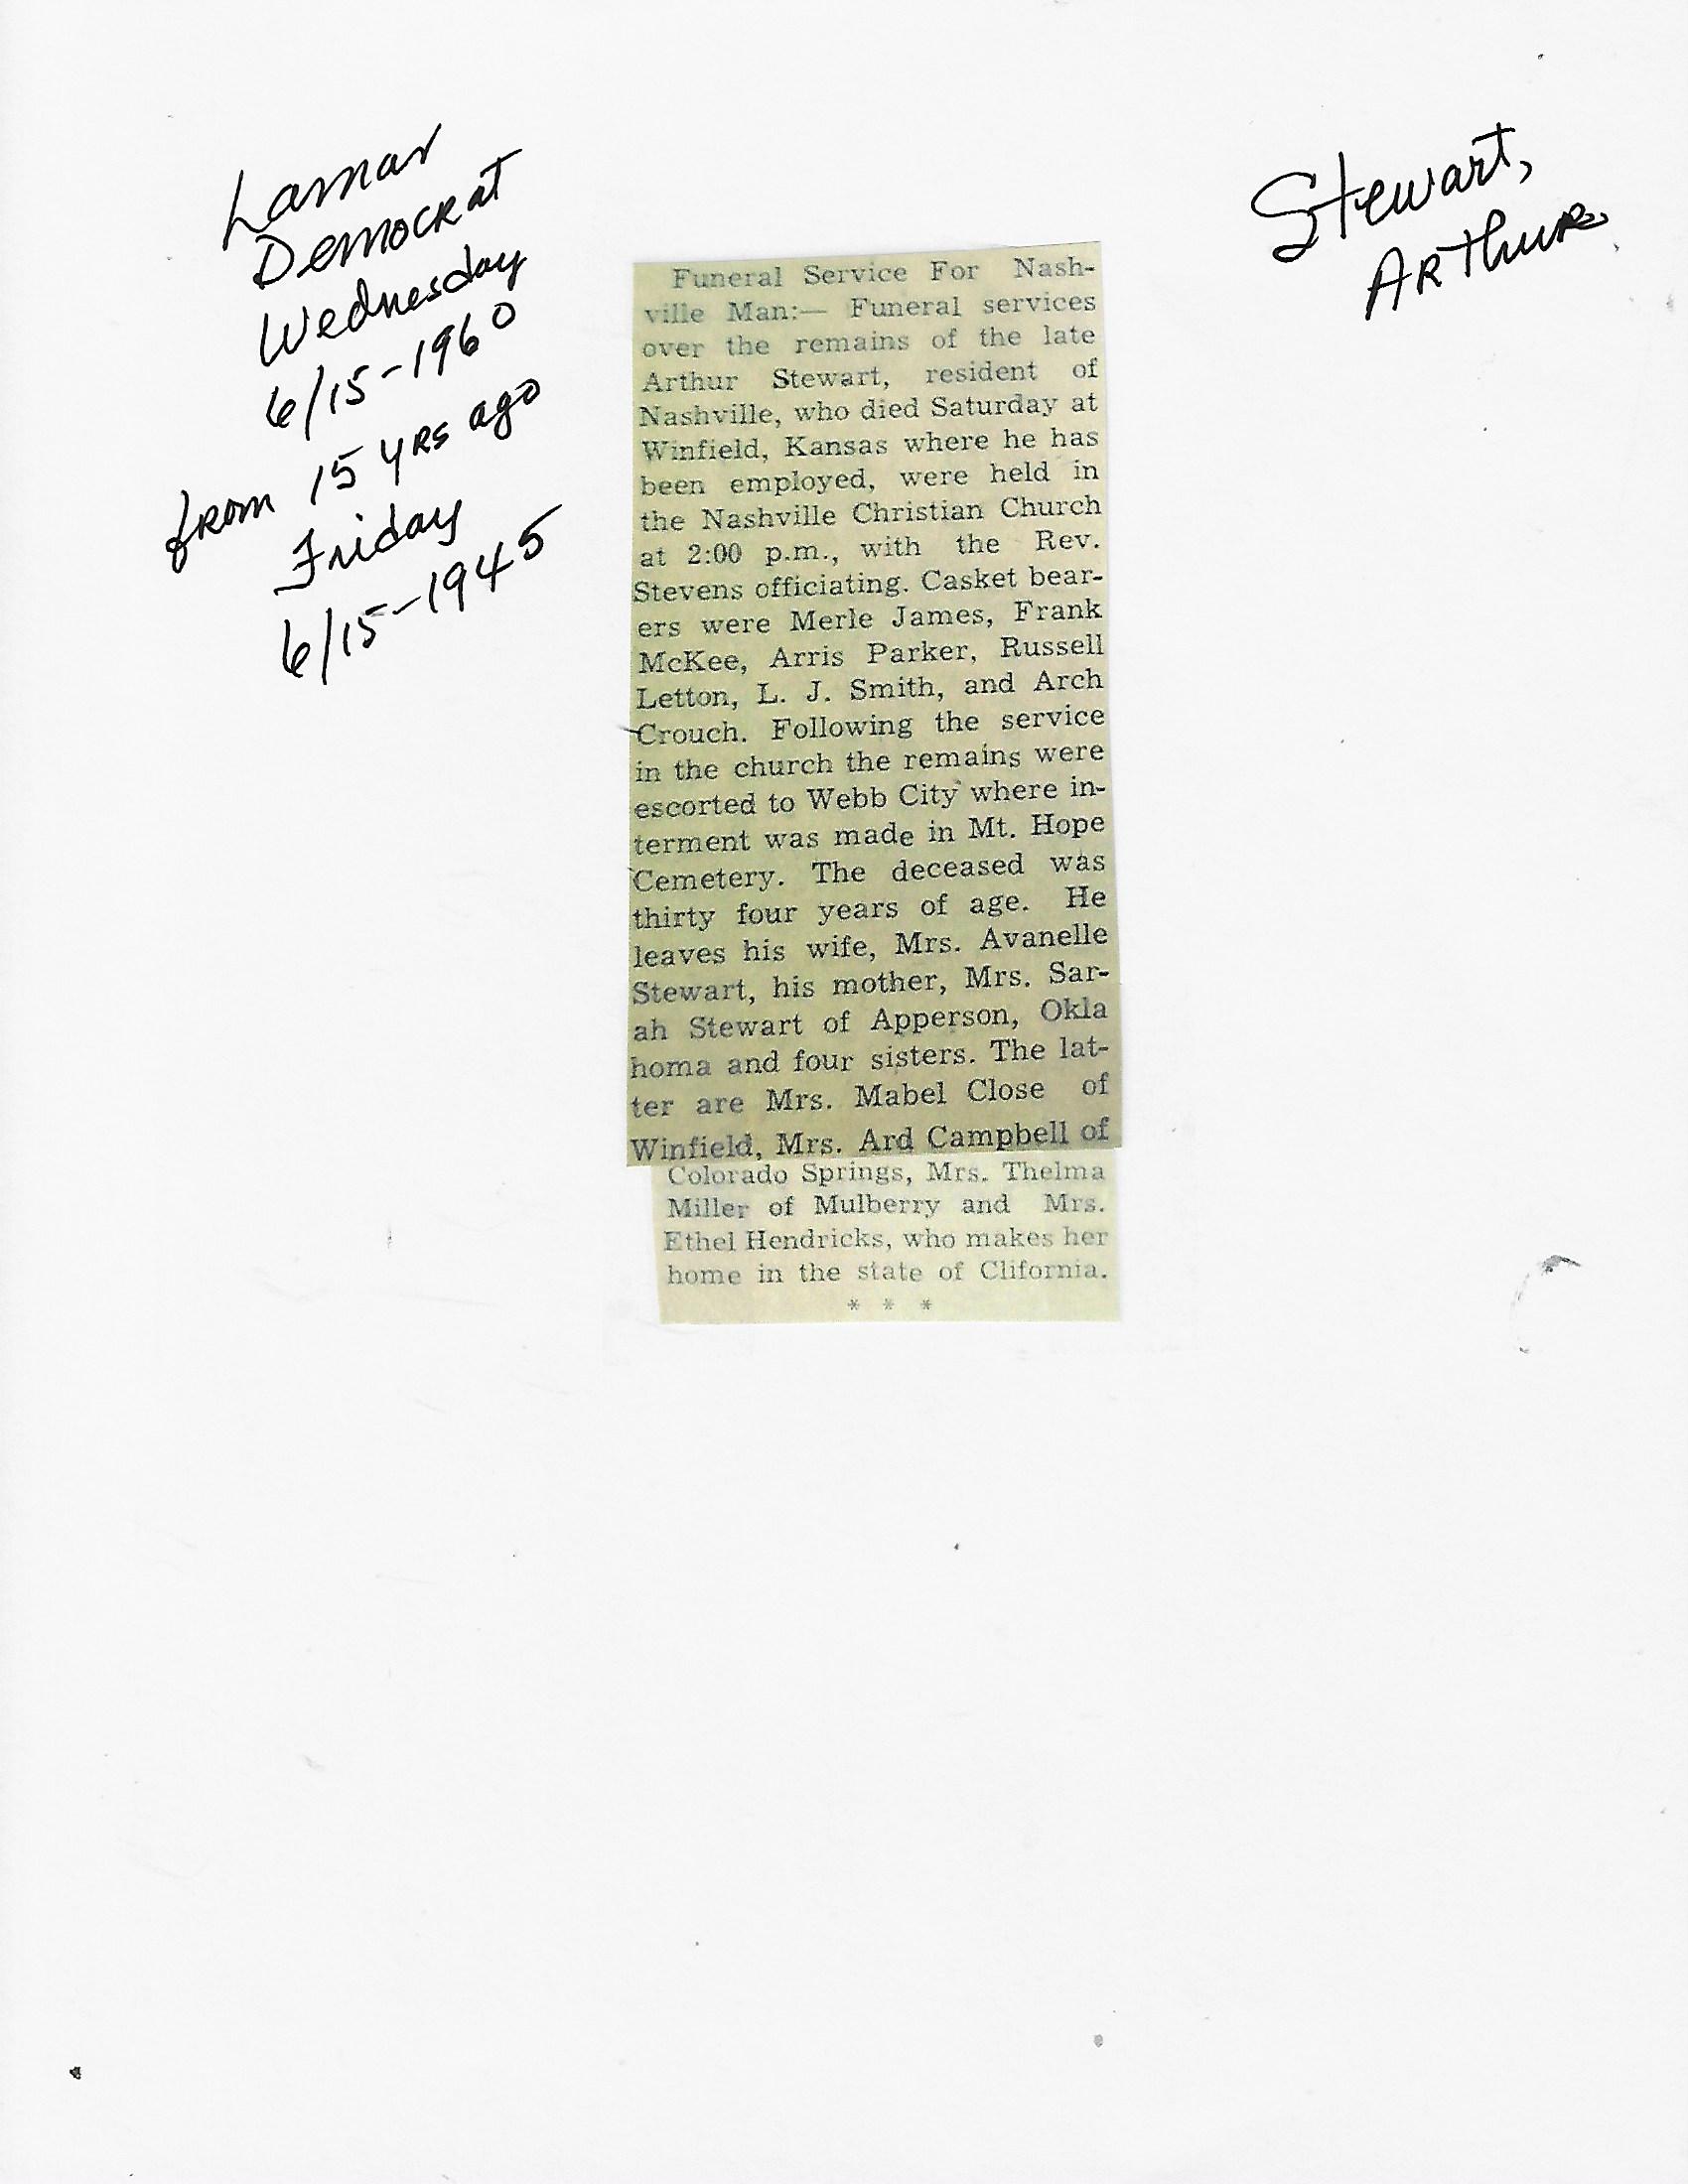 Lamar
Democrat
Wednesday
6/15-1960
from 15 yrs ago
Friday
6/15-1945
Stewart,
Arthur
Funeral Service For Nash-
ville Man:— Funeral services
over the remains of the late
Arthur Stewart, resident of
Nashville, who died Saturday at
Winfield, Kansas where he has
been employed, were held in
the Nashville Christian Church
at 2:00 p.m., with the Rev.
Stevens officiating. Casket bear-
ers were Merle James, Frank
McKee, Arris Parker, Russell
Letton, L. J. Smith, and Arch
Crouch. Following the service
in the church the remains were
escorted to Webb City where in-
terment was made in Mt. Hope
Cemetery. The deceased was
thirty four years of age. He
leaves his wife, Mrs. Avanelle
Stewart, his mother, Mrs. Sar-
ah Stewart of Apperson, Okla
homa and four sisters. The lat-
ter are Mrs. Mabel Close of
Winfield, Mrs. Ard Campbell of
Colorado Springs, Mrs. Thelma
Miller of Mulberry and Mrs.
Ethel Hendricks, who makes her
home in the state of Clifornia.
* * *